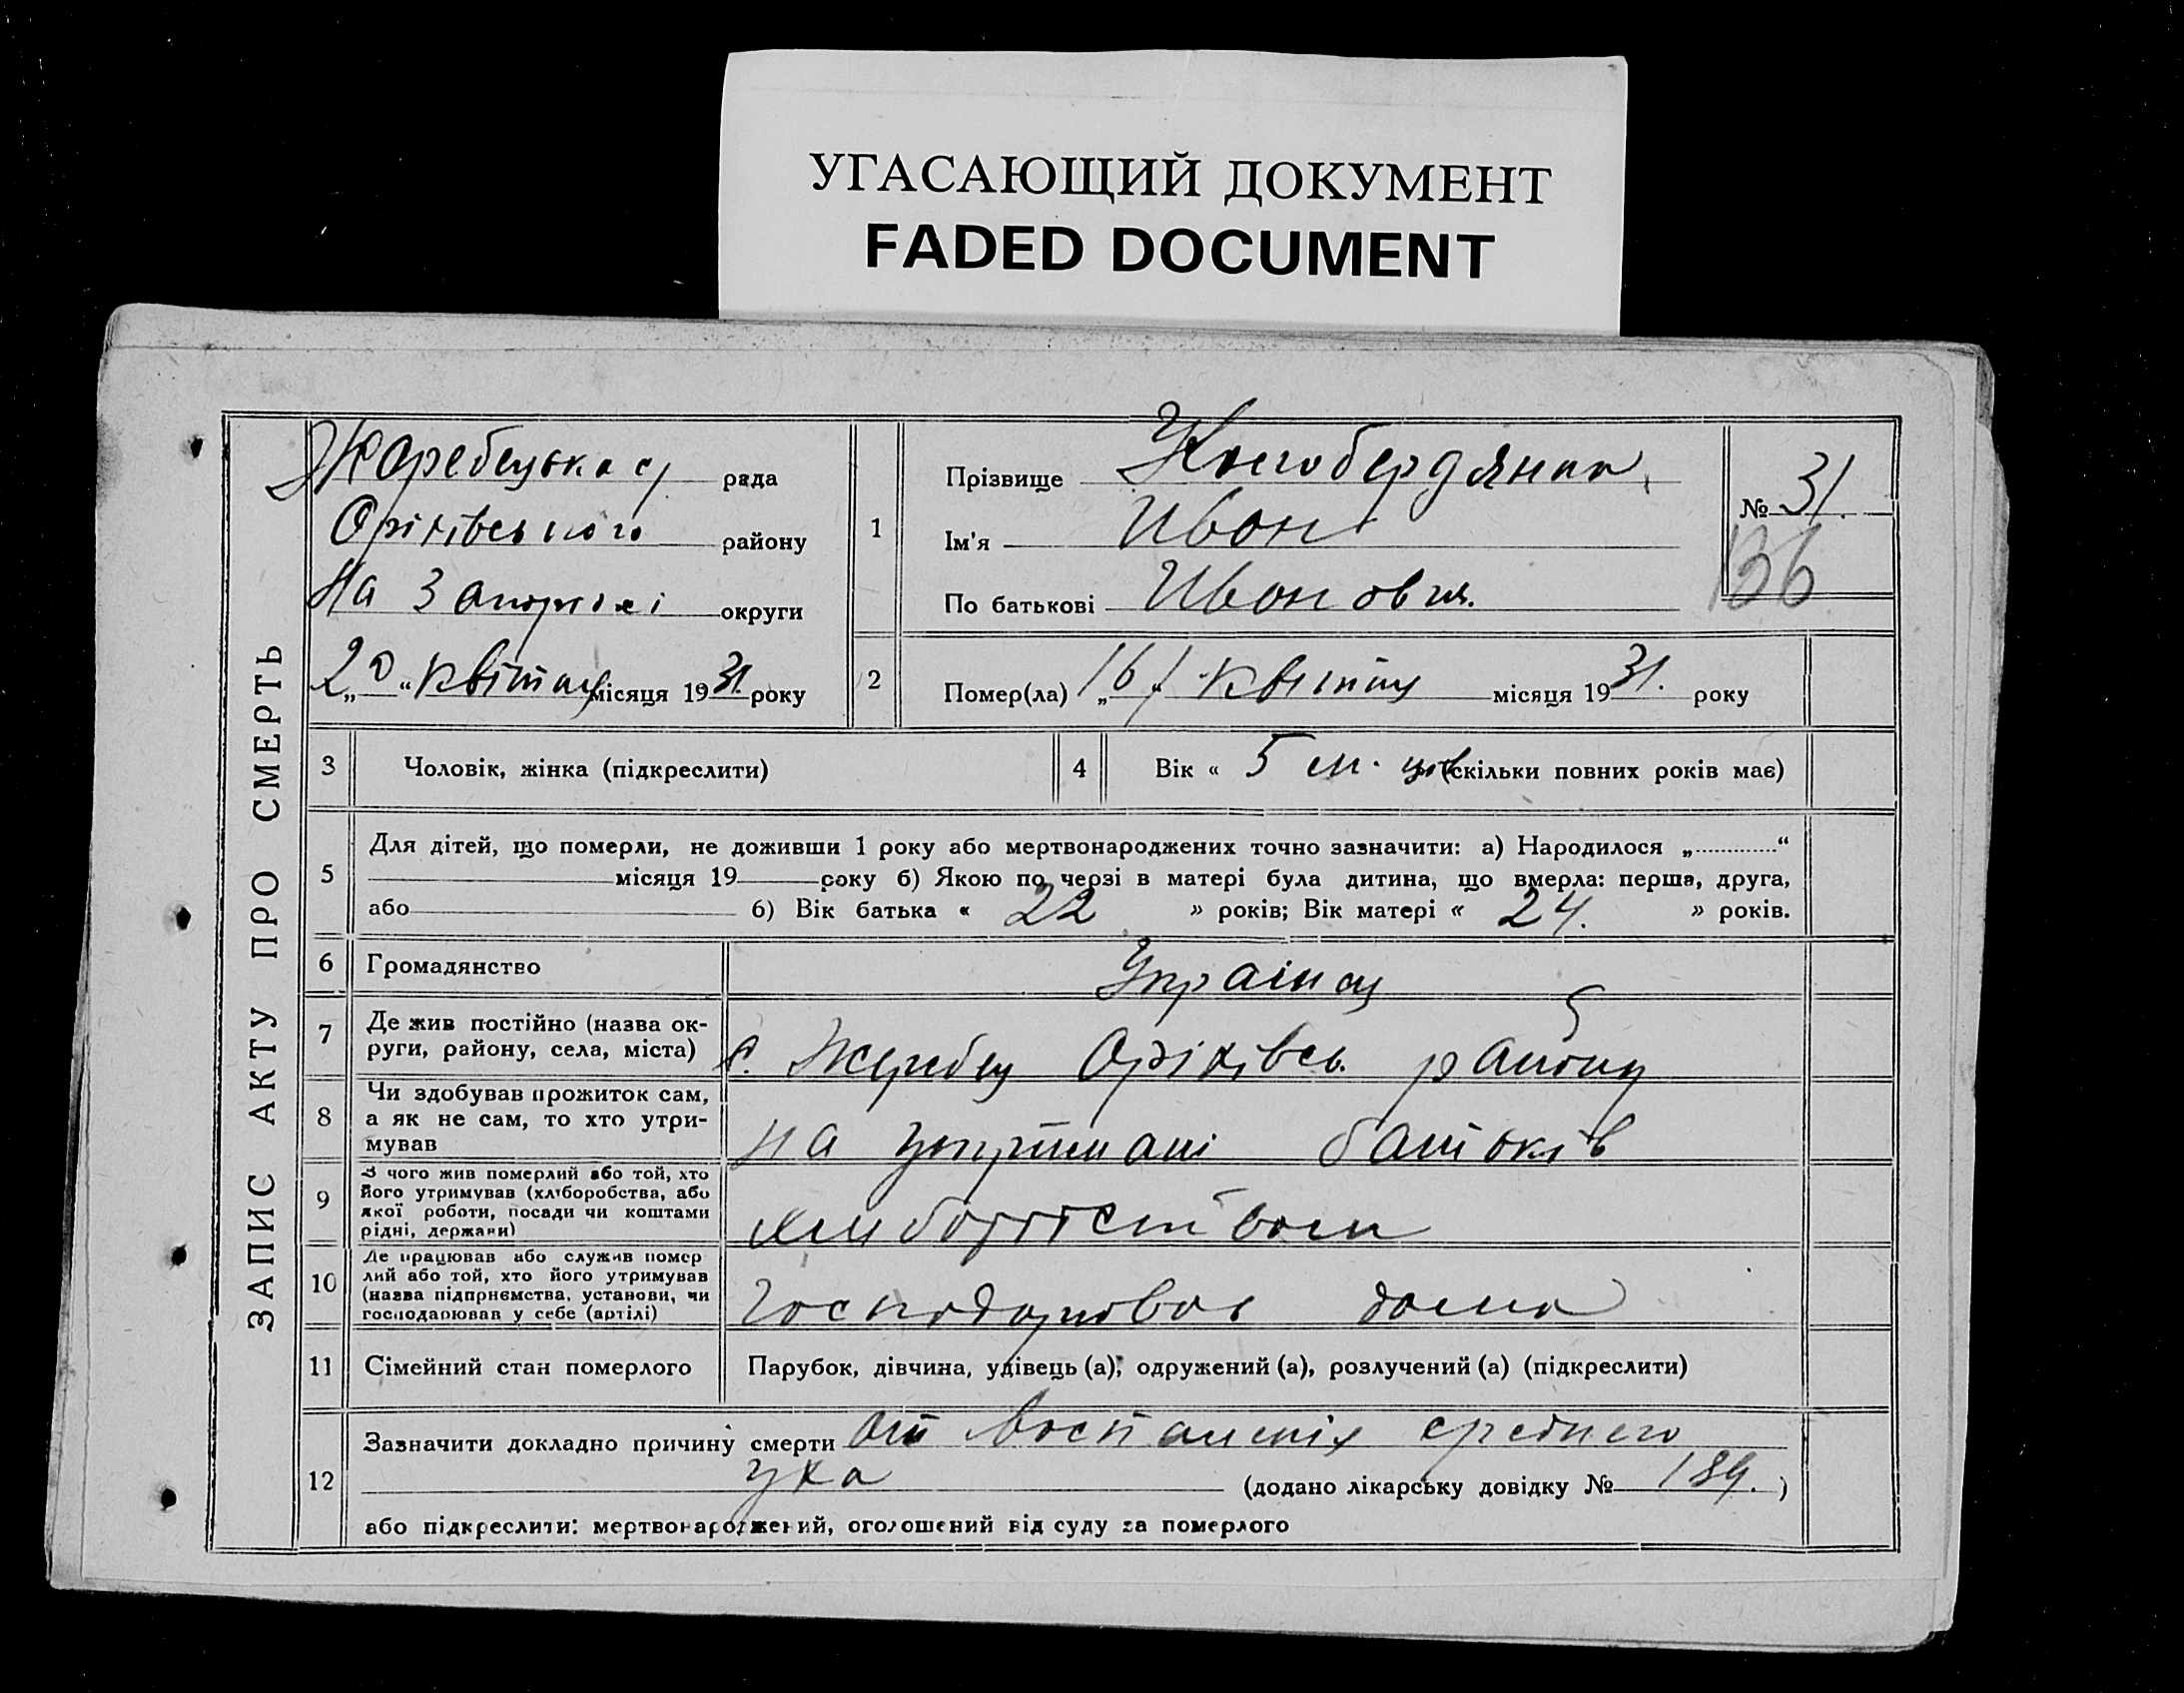 УГАСАЮЩИЙ ДОКУМЕНТ
FADED DOCUMENT
ЗАПИС АКТУ ПРО СМЕРТЬ
Жеребецька с/ рада
Оріхівського району
На Запоріжі округи
„20“ квітня місяця 1931. року
1
Прізвище
Ім'я Иван
По батькові Иванович.
№ 31.
136
2
Помер(ла) „16/“ квітня місяця 1931. року
3 Чоловік, жінка (підкреслити)
4 Вік « 5 м-ців (скільки повних років має)
5 Для дітей, що померли, не доживши 1 року або мертвонароджених точно зазначити: а) Народилося „ “
місяця 19 року б) Якою по черзі в матері була дитина, що вмерла: перша, друга,
або б) Вік батька « 22 » років; Вік матері « 24. » років.
6 Громадянство Українец
7 Де жив постійно (назва ок-
руги, району, села, міста) с. Жеребец Оріхівсь. району
8 Чи здобував прожиток сам,
а як не сам, то хто утри-
мував на утримані батьків
9 З чого жив померлий або той, хто
його утримував (хліборобства, або
якої роботи, посади чи коштами
рідні, держави) хліборобством
10 Де працював або служив помер
лий або той, хто його утримував
(назва підприємства, установи, чи
господарював у себе (артілі) господарював дома
11 Сімейний стан померлого Парубок, дівчина, удівець (а), одружений (а), розлучений (а) (підкреслити)
12 Зазначити докладно причину смерти от воспаления среднего
уха (додано лікарську довідку № 189. )
або підкреслити: мертвонароджений, оголошений від суду за померлого